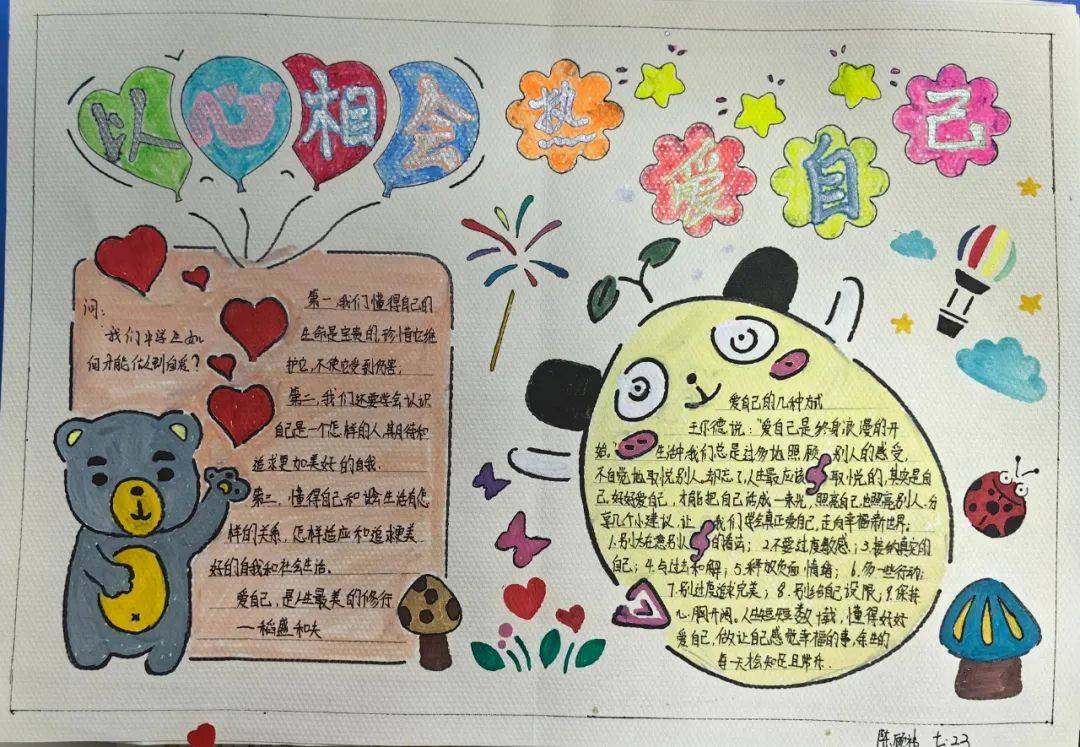 以心相会
热爱自己
问:
我们中学生如
何才能做到自爱?
第一,我们懂得自己的
生命是宝贵的,珍惜它维
护它,不使它受到伤害;
第二,我们还要学会认识
自己是一个怎样的人,期待和
追求更加美好的自我.
第三,懂得自己和社会生活有怎
样的关系,怎样适应和追求更美
好的自我和社会生活.
爱自己,是人生最美的修行
——稻盛和夫
爱自己的几种方式
王尔德说:"爱自己是终身浪漫的开
始。"生活中我们总是过多地照顾别人的感受,
不自觉地取悦别人,却忘了人生最应该取悦的,其实是自
己.好好爱自己,才能把自己活成一束光,照亮自己,也照亮别人.分
享几个小建议,让我们学会真正爱自己,走向幸福新世界:
1.别太在意别人的看法;2.不要过度敏感;3.接纳真实的
自己;4.与过去和解;5.释放负面情绪;6.多一些行动;
7.别过度追求完美;8.别给自己设限;9.保持
心胸开阔.人生短短数十载,懂得好好
爱自己,做让自己感觉幸福的事,余生的
每一天松知足且常乐.
陈 七.23